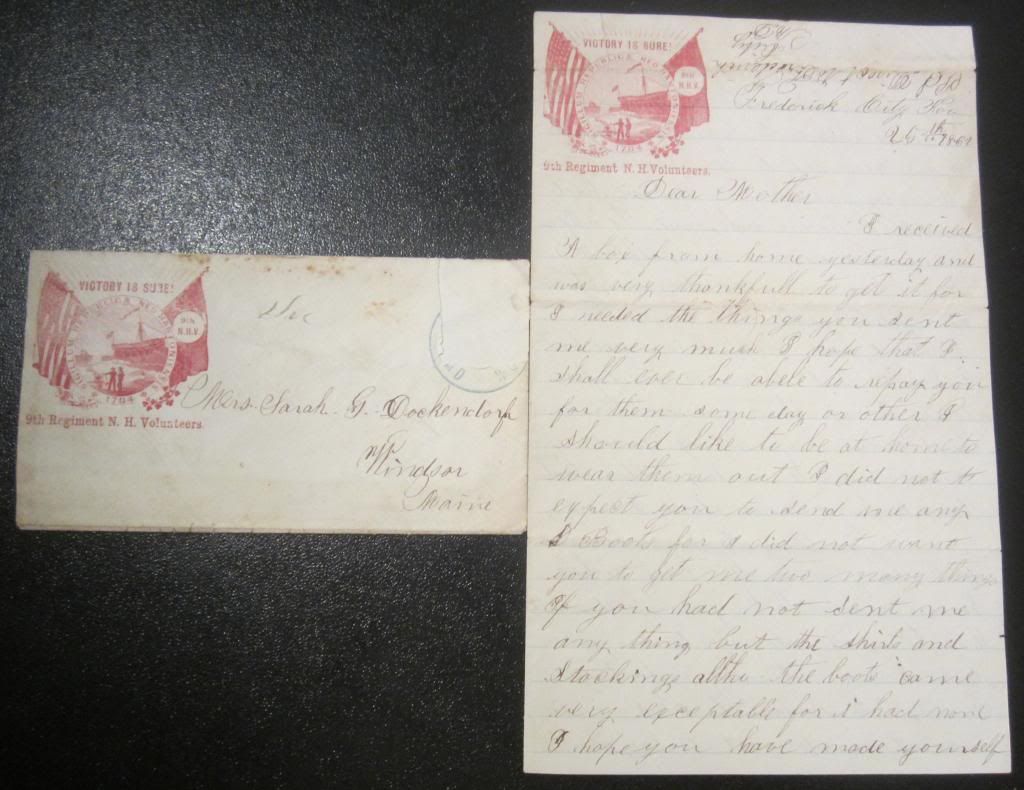 VICTORY IS SURE!
SIGILLUM REIPUBLICÆ NEO HANTONIENSIS
9th
N.H.V.
1784
9th Regiment N. H. Volunteers.
Dec
Mrs. Sarah G. Dockendorf
Windsor
Maine
VICTORY IS SURE!
9th
N.H.V.
1784
9th Regiment N. H. Volunteers.
Frederick City
25th 1862
Dear Mother
I received
A box from home yesterday and
was very thankfull to get it for
I needed the things you sent
me very much I hope that I
shall ever be abele to repay you
for them some day or other I
should like to be at home to
wear them out I did not
expect you to send me any
Boots for I did not want
you to get me two many things
If you had not sent me
any thing but the shirts and
stockings altho the boots came
very exceptable for i had none
I hope you have made yourself